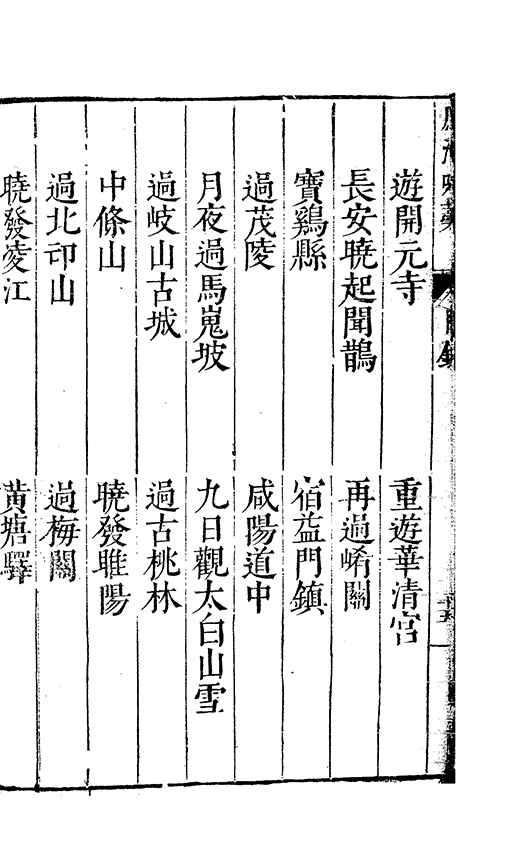 遊開元寺
重遊華清宮
長安曉起聞鵲
再過崤關
寶鷄縣
宿益門鎮
過茂陵
咸陽道中
月夜過馬嵬坡
九日觀太白山雪
過岐山古城
過古桃林
中條山
曉發睢陽
過北邙山
過梅關
曉發凌江
黃塘驛
目錄